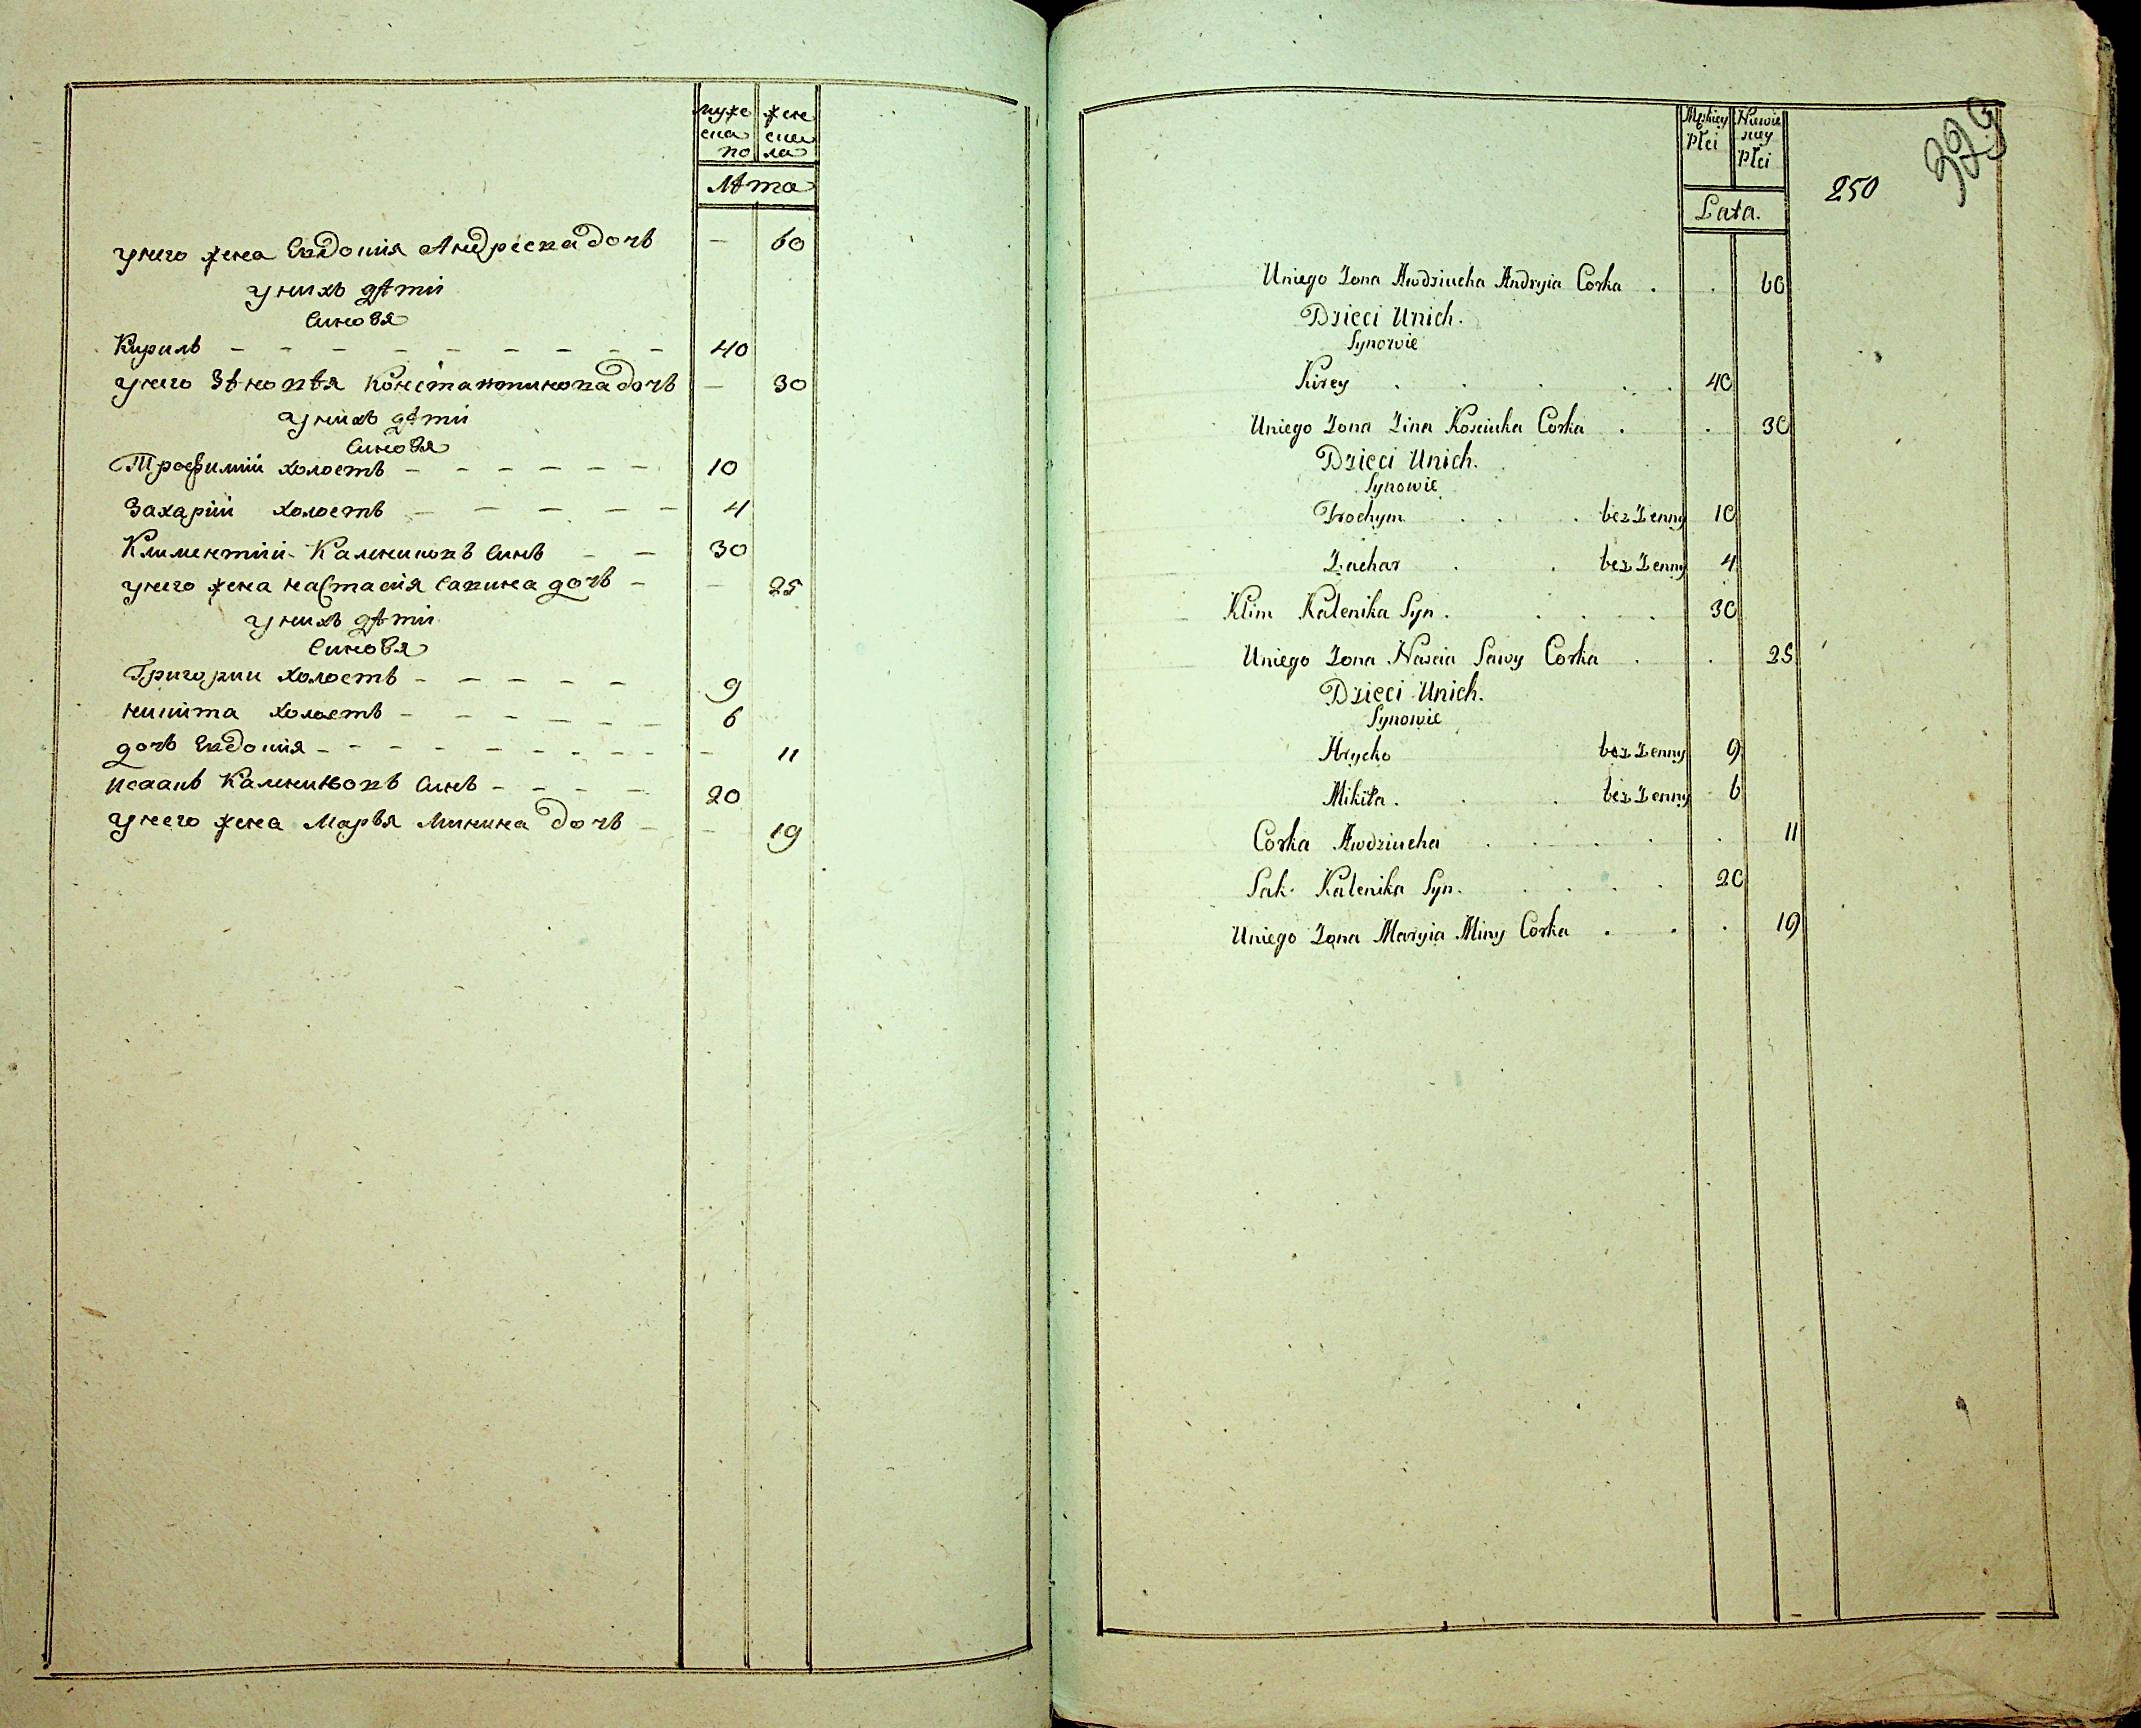 муже жене
ска ска
по ла
Лѣта
унего жена Евдокия Андреева дочь — 60
унихъ дѣти
Синовя
Кирилъ — — — — — — — — 40
унего Зѣновѣя Константинова дочь — 30
унихъ дѣти
Синовя
Трофимий холостъ — — — — — — 10
Захарий холостъ — — — — — 4
Климентий Калениковъ Синъ — — 30
унего жена настасия Савина дочь — — 25
унихъ дѣти
Синовя
Григории холостъ — — — — — 9
никита холостъ — — — — — — 6
дочь Евдокия — — — — — — — — 11
Исаакъ Калениковъ Синъ — — — — 20
унего жена Марѣя Минина дочь — — 19
Męskiey Niewie
Płci skiey
Płci
Lata.
250
Uniego Zona Awdziucha Andryia Corka . . 60
Dzieci Unich.
Synowie
Kirey . . . . . 40
Uniego Zona Zina Kosciuka Corka . . 30
Dzieci Unich.
Synowie
Trochym . . . bez Zenny 10
Zachar . . bez Zenny 4
Klim Kalenika Syn . . . . 30
Uniego Zona Nascia Sawy Corka . . 25
Dzieci Unich.
Synowie
Hrycko bez Zenny 9
Mikita . . . bez Zenny 6
Corka Awdziucha . . . . . 11
Sak Kalenika Syn . . . . . 20
Uniego Zona Maryia Miny Corka . . . 19